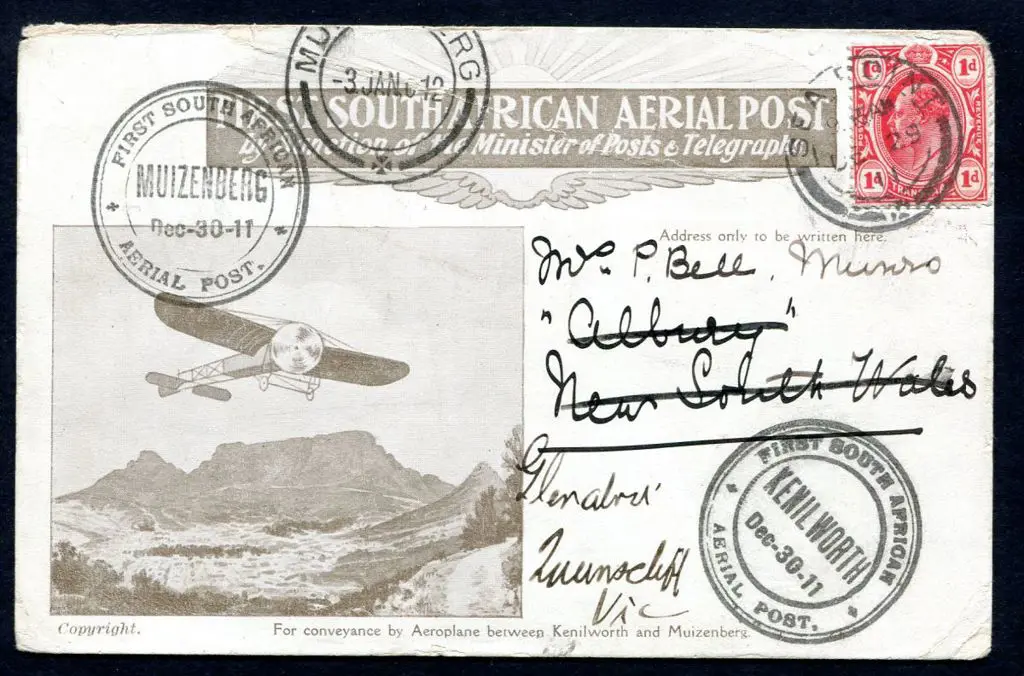 FIRST SOUTH AFRICAN AERIAL POST
by Sanction of the Minister of Posts & Telegraphs
FIRST SOUTH AFRICAN
MUIZENBERG
Dec-30-11
AERIAL POST.
MUIZENBERG
-3 JAN 12
1d 1d
POSTAGE REVENUE
1d 1d
TRANSVAAL
Address only to be written here.
Mrs. P. Bell, Munro
"Albury"
New South Wales
Queenscliff
Vic
FIRST SOUTH AFRICAN
KENILWORTH
Dec-30-11
AERIAL POST.
Copyright.
For conveyance by Aeroplane between Kenilworth and Muizenberg.